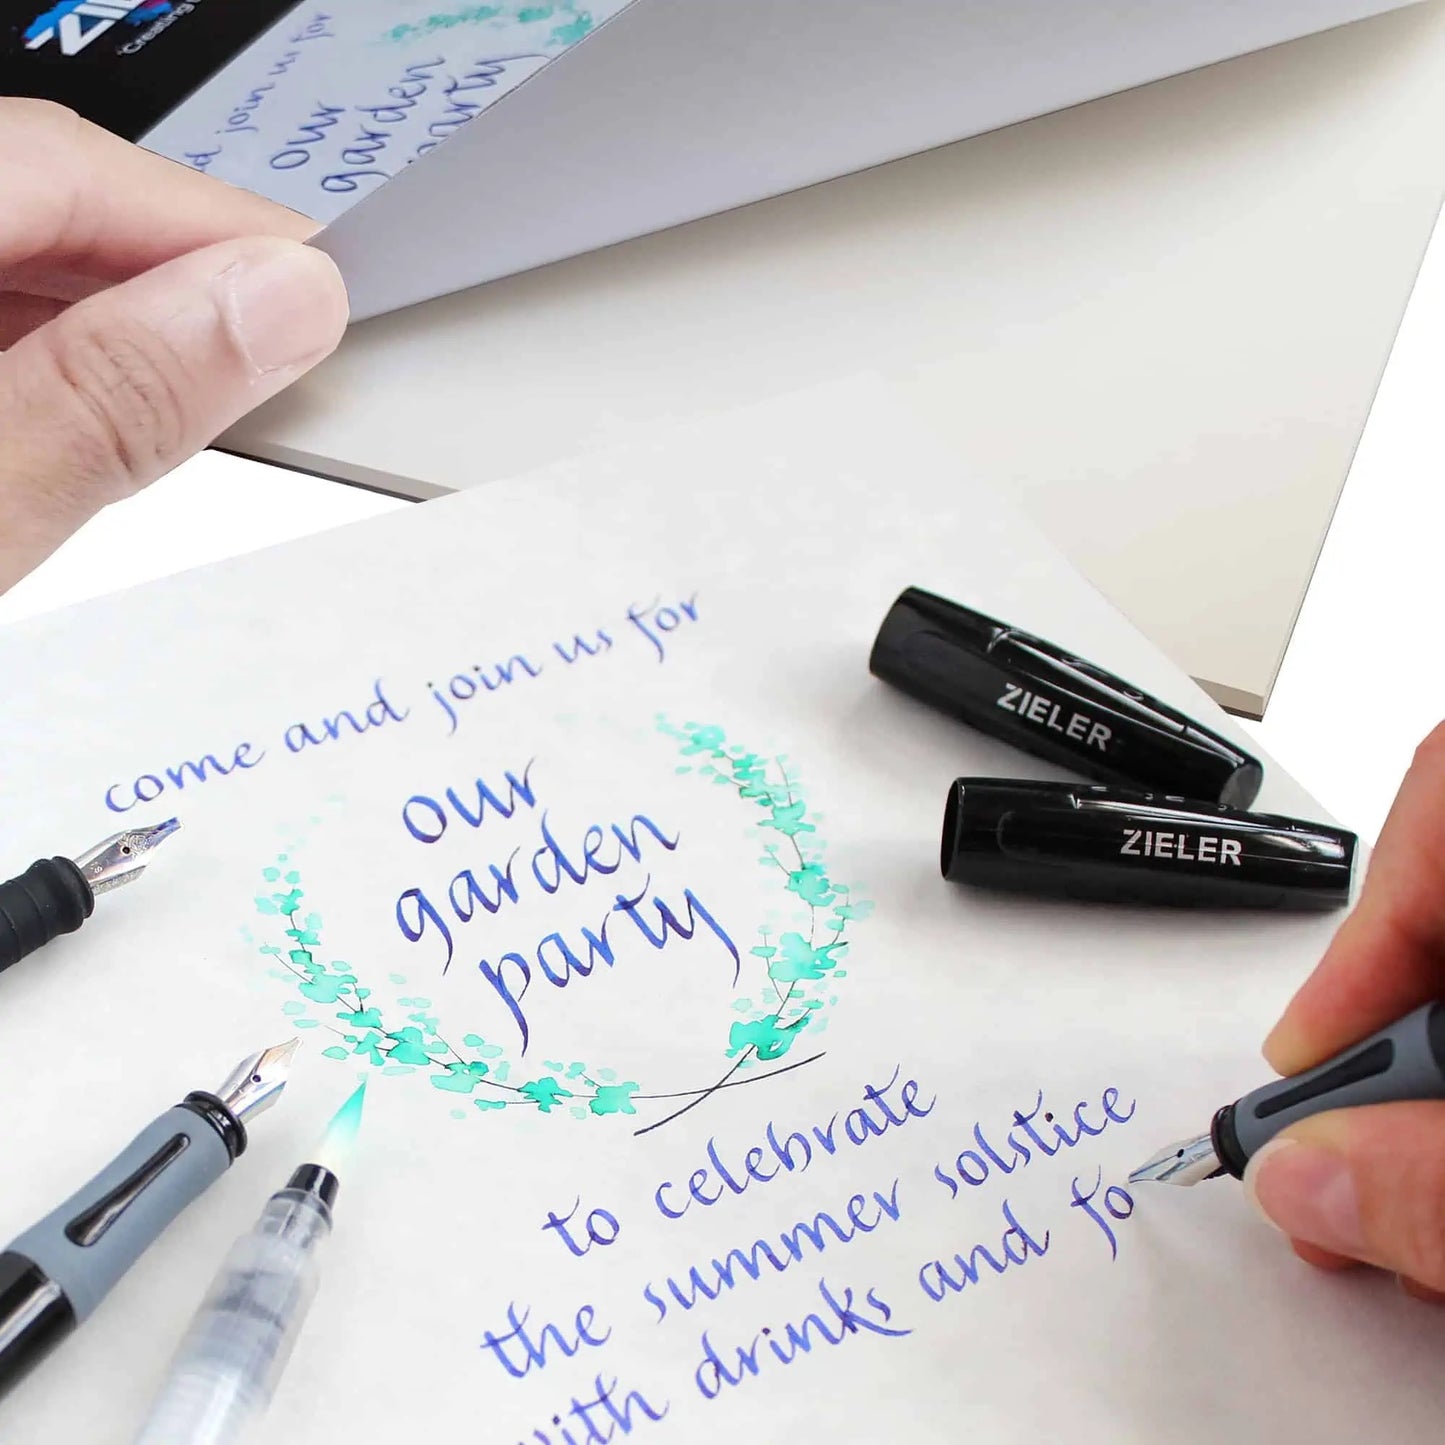 Creating
join us for
our
garden
party
come and join us for
our
garden
party
ZIELER
ZIELER
to celebrate
the summer solstice
with drinks and fo